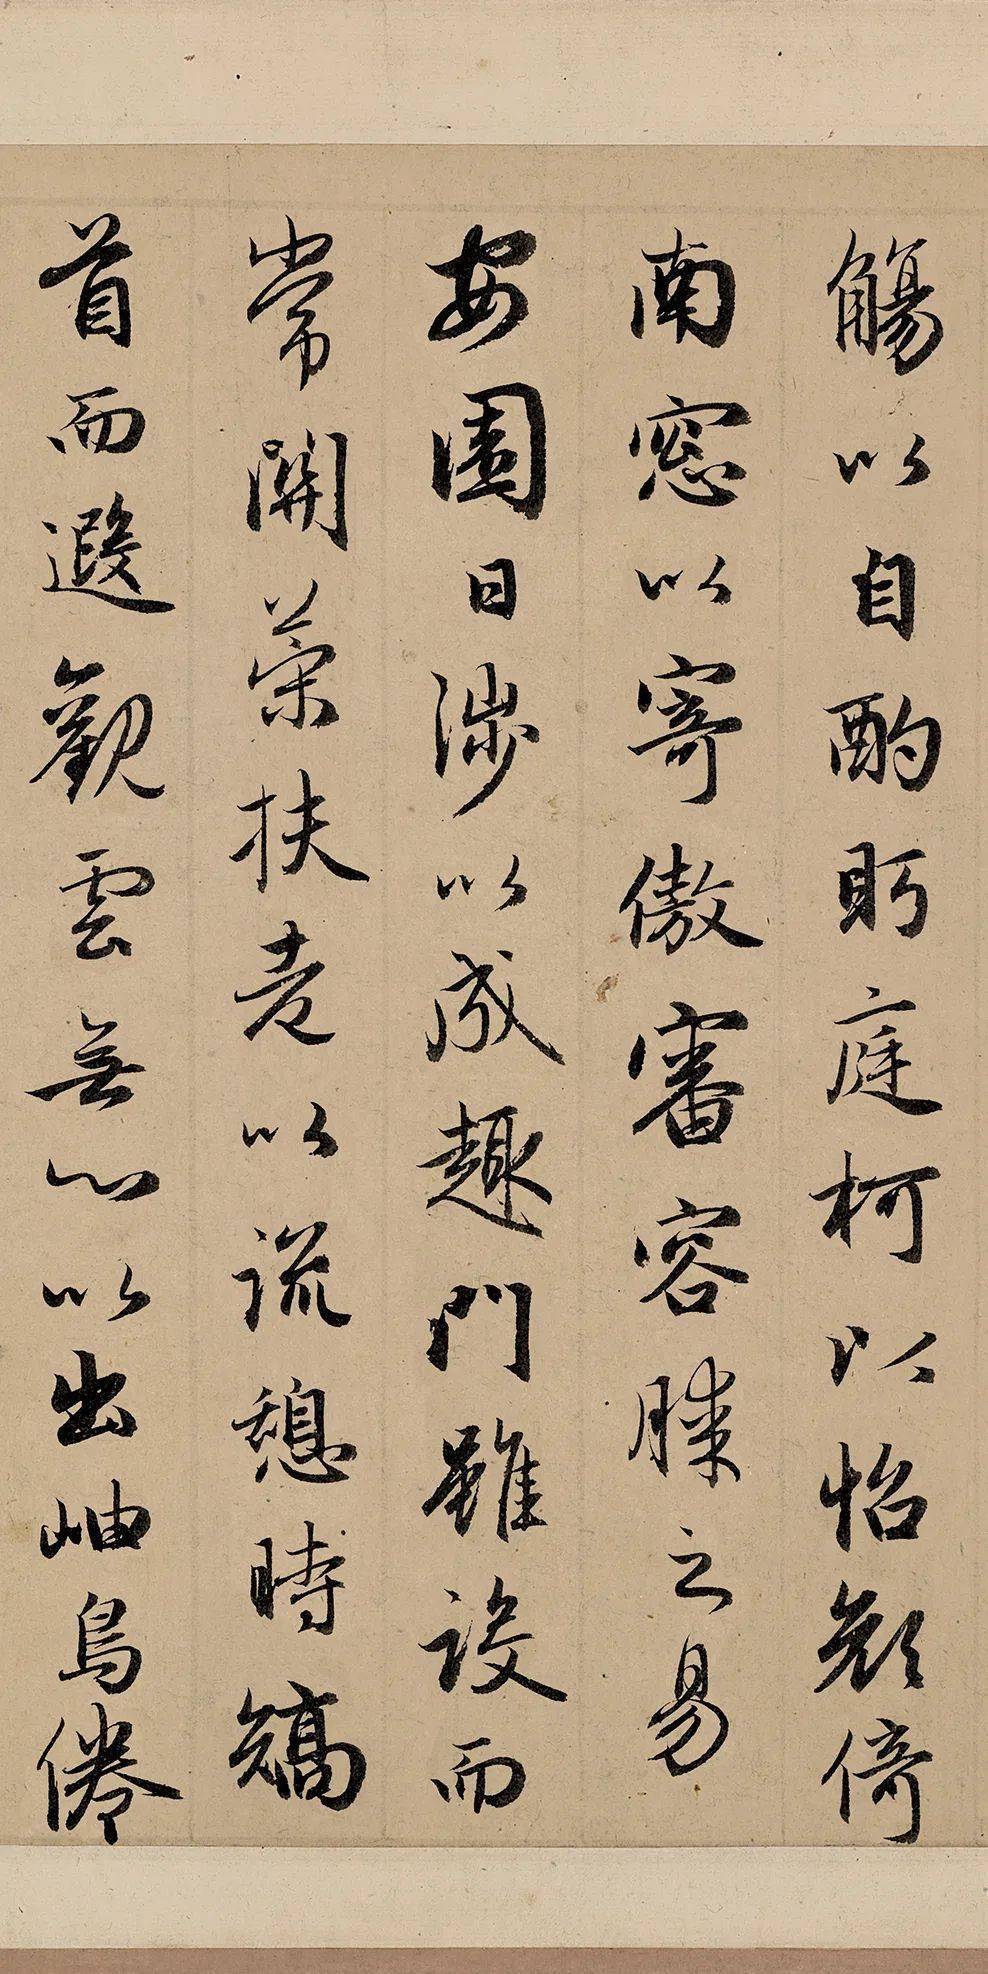 觴以自酌眄庭柯以怡顏倚
南窓以寄傲審容膝之易
安園日涉以成趣門雖設而
常關策扶老以流憩時矯
首而遐觀雲無心以出岫鳥倦